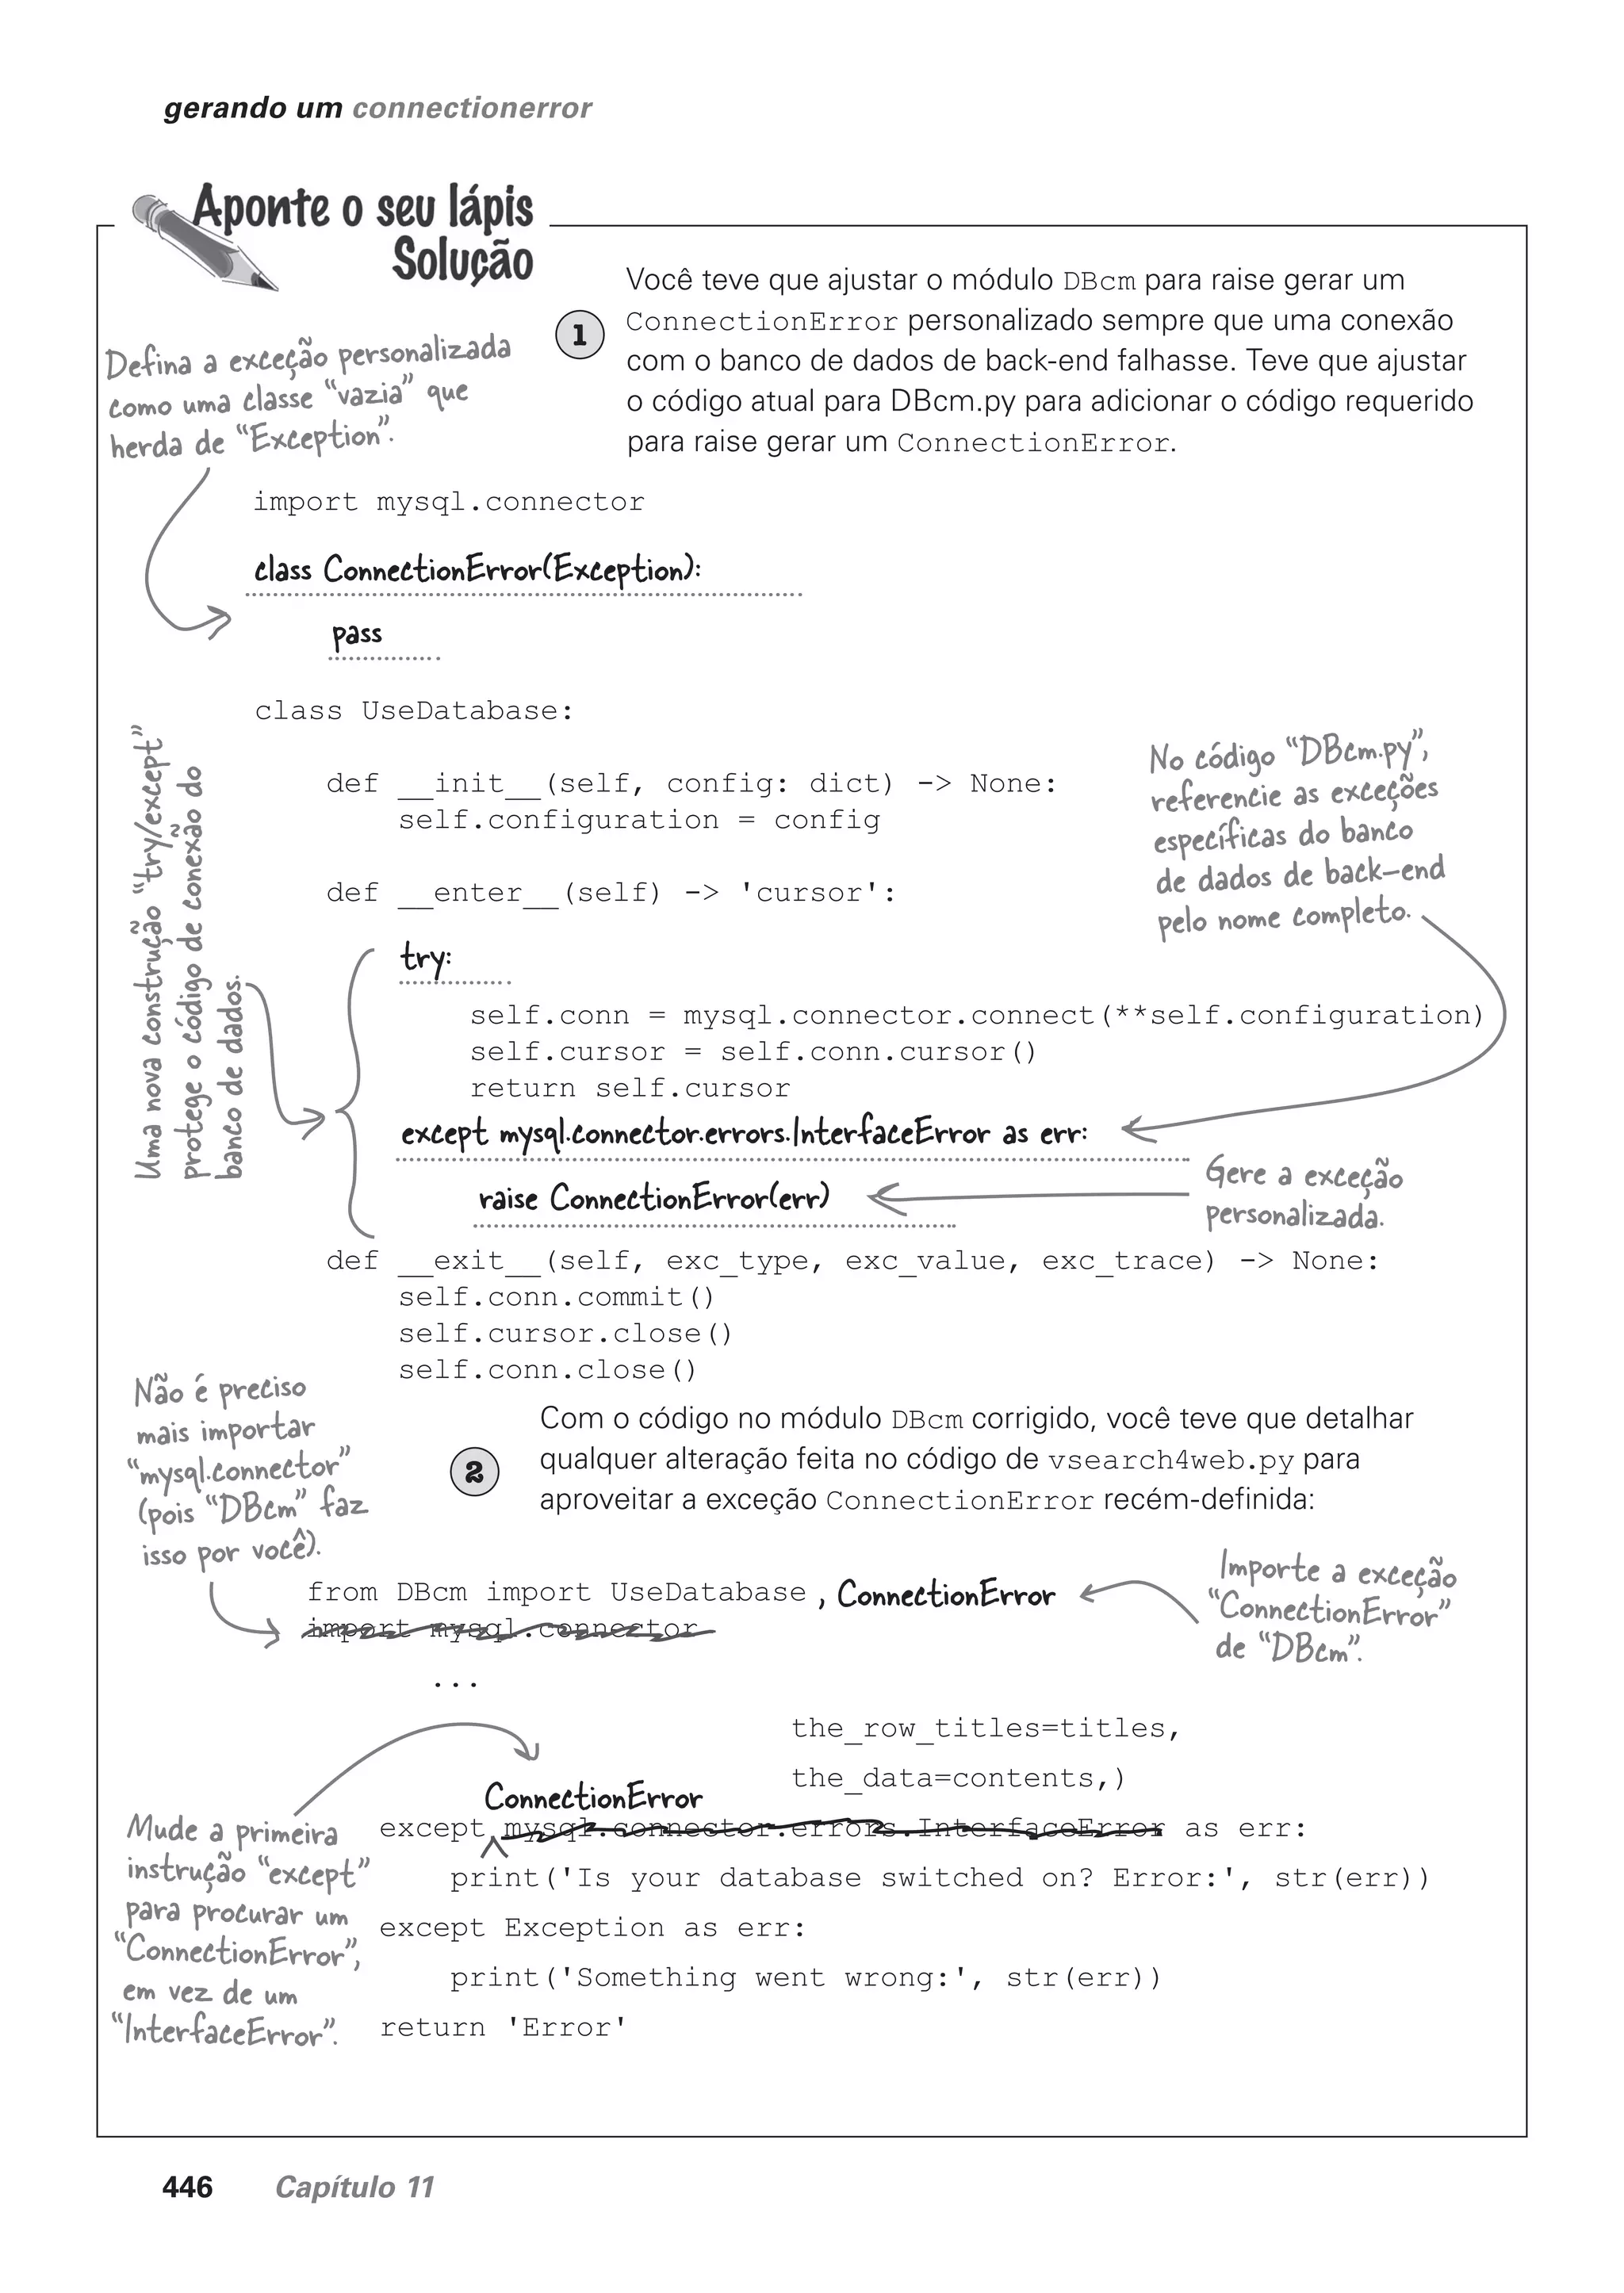 gerando um connectionerror
Aponte o seu lápis
Solução
Você teve que ajustar o módulo DBcm para raise gerar um
1
ConnectionError personalizado sempre que uma conexão
com o banco de dados de back-end falhasse. Teve que ajustar
o código atual para DBcm.py para adicionar o código requerido
para raise gerar um ConnectionError.
Defina a exceção personalizada
como uma classe “vazia” que
herda de “Exception”.
import mysql.connector
class ConnectionError(Exception):
pass
class UseDatabase:
def __init__(self, config: dict) -> None:
self.configuration = config
def __enter__(self) -> 'cursor':
No código “DBcm.py”,
referencie as exceções
específicas do banco
de dados de back-end
pelo nome completo.
Uma nova construção “try/except”
protege o código de conexão do
banco de dados.
try:
self.conn = mysql.connector.connect(**self.configuration)
self.cursor = self.conn.cursor()
return self.cursor
except mysql.connector.errors.InterfaceError as err:
raise ConnectionError(err)
Gere a exceção
personalizada.
def __exit__(self, exc_type, exc_value, exc_trace) -> None:
self.conn.commit()
self.cursor.close()
self.conn.close()
Não é preciso
mais importar
“mysql.connector”
(pois “DBcm” faz
isso por você).
2
Com o código no módulo DBcm corrigido, você teve que detalhar
qualquer alteração feita no código de vsearch4web.py para
aproveitar a exceção ConnectionError recém-definida:
from DBcm import UseDatabase , ConnectionError
import mysql.connector
Importe a exceção
“ConnectionError”
de “DBcm”.
...
the_row_titles=titles,
the_data=contents,)
ConnectionError
except mysql.connector.errors.InterfaceError as err:
print('Is your database switched on? Error:', str(err))
except Exception as err:
print('Something went wrong:', str(err))
return 'Error'
Mude a primeira
instrução “except”
para procurar um
“ConnectionError”,
em vez de um
“InterfaceError”.
446 Capítulo 11